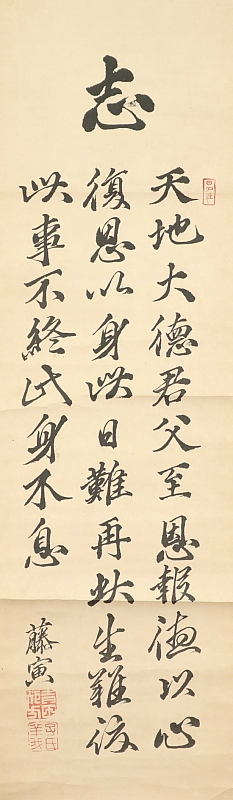 志
天地大德君父至恩報德以心
復恩以身此日難再此生難復
此事不終此身不息
藤寅